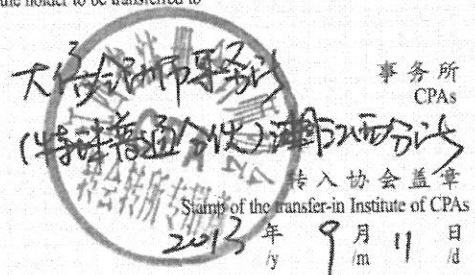 the holder to be transferred to
大信会计师事务所
事务所
CPAs
(特殊普通合伙)江西分所
转所专用章
转入协会盖章
Stamp of the transfer-in Institute of CPAs
2013 年 9 月 11 日
/y /m /d